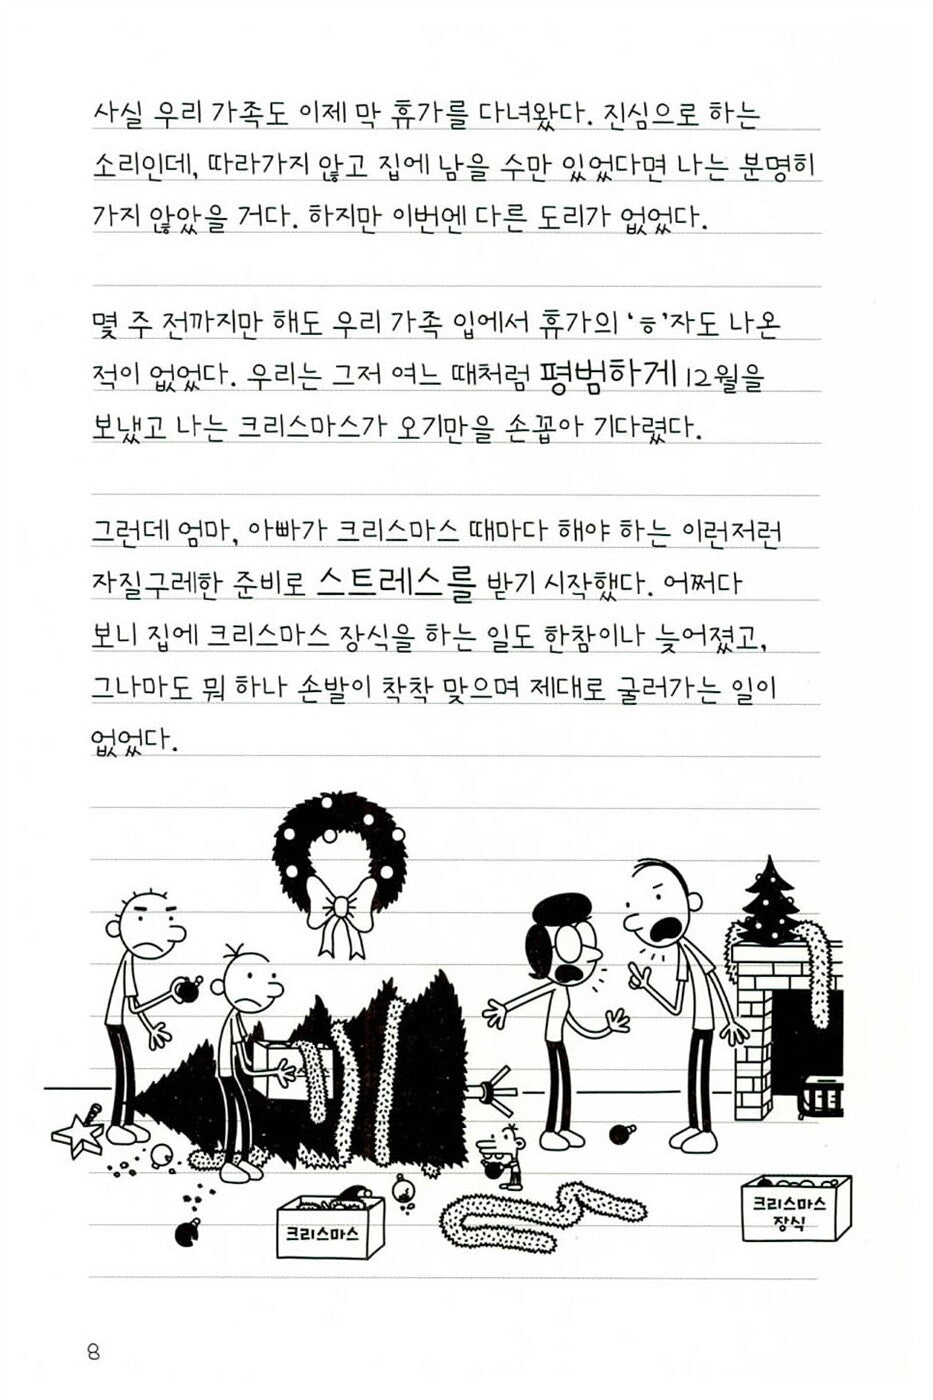 사실 우리 가족도 이제 막 휴가를 다녀왔다. 진심으로 하는
소리인데, 따라가지 않고 집에 남을 수만 있었다면 나는 분명히
가지 않았을 거다. 하지만 이번엔 다른 도리가 없었다.
몇 주 전까지만 해도 우리 가족 입에서 휴가의 ‘ㅎ’자도 나온
적이 없었다. 우리는 그저 여느 때처럼 평범하게 12월을
보냈고 나는 크리스마스가 오기만을 손꼽아 기다렸다.
그런데 엄마, 아빠가 크리스마스 때마다 해야 하는 이런저런
자질구레한 준비로 스트레스를 받기 시작했다. 어쩌다
보니 집에 크리스마스 장식을 하는 일도 한참이나 늦어졌고,
그나마도 뭐 하나 손발이 착착 맞으며 제대로 굴러가는 일이
없었다.
크리스마스
크리스마스
장식
8